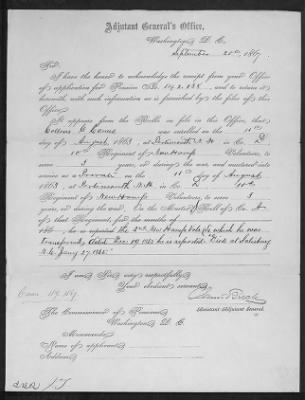 Adjutant General's Office,
Washington, D. C.
September 20th, 1867.
Sir:
I have the honor to acknowledge the receipt from your Office
of application for Pension No. 142.835, and to return it
herewith with such information as is furnished by the files of this
Office.
It appears from the Rolls on file in this Office, that
was enrolled on the 11th
day of August, 1863, at Portsmouth N. H. in Co. D
10th Regiment of New Hamp Volunteers, to
serve 3 years, or during the war, and mustered into
service as a Private on the 11th day of August,
1863, at Portsmouth N. H., in Co. D 10th
Regiment of New Hamp Volunteers, to serve 3
years, or during the war. On the Muster Roll of Co. A
of that Regiment, for the months of
186 , he is reported the 2nd New Hamp Vols to which he was
transferred Dec 19, 1863 he is reported "Died at Salisbury
N.C. Jany 27, 1865."
I am Sir, very respectfully,
Your obedient servant,
Assistant Adjutant General.
The Commissioner of Pensions,
Washington, D. C.
Memoranda:
Name of applicant
Address